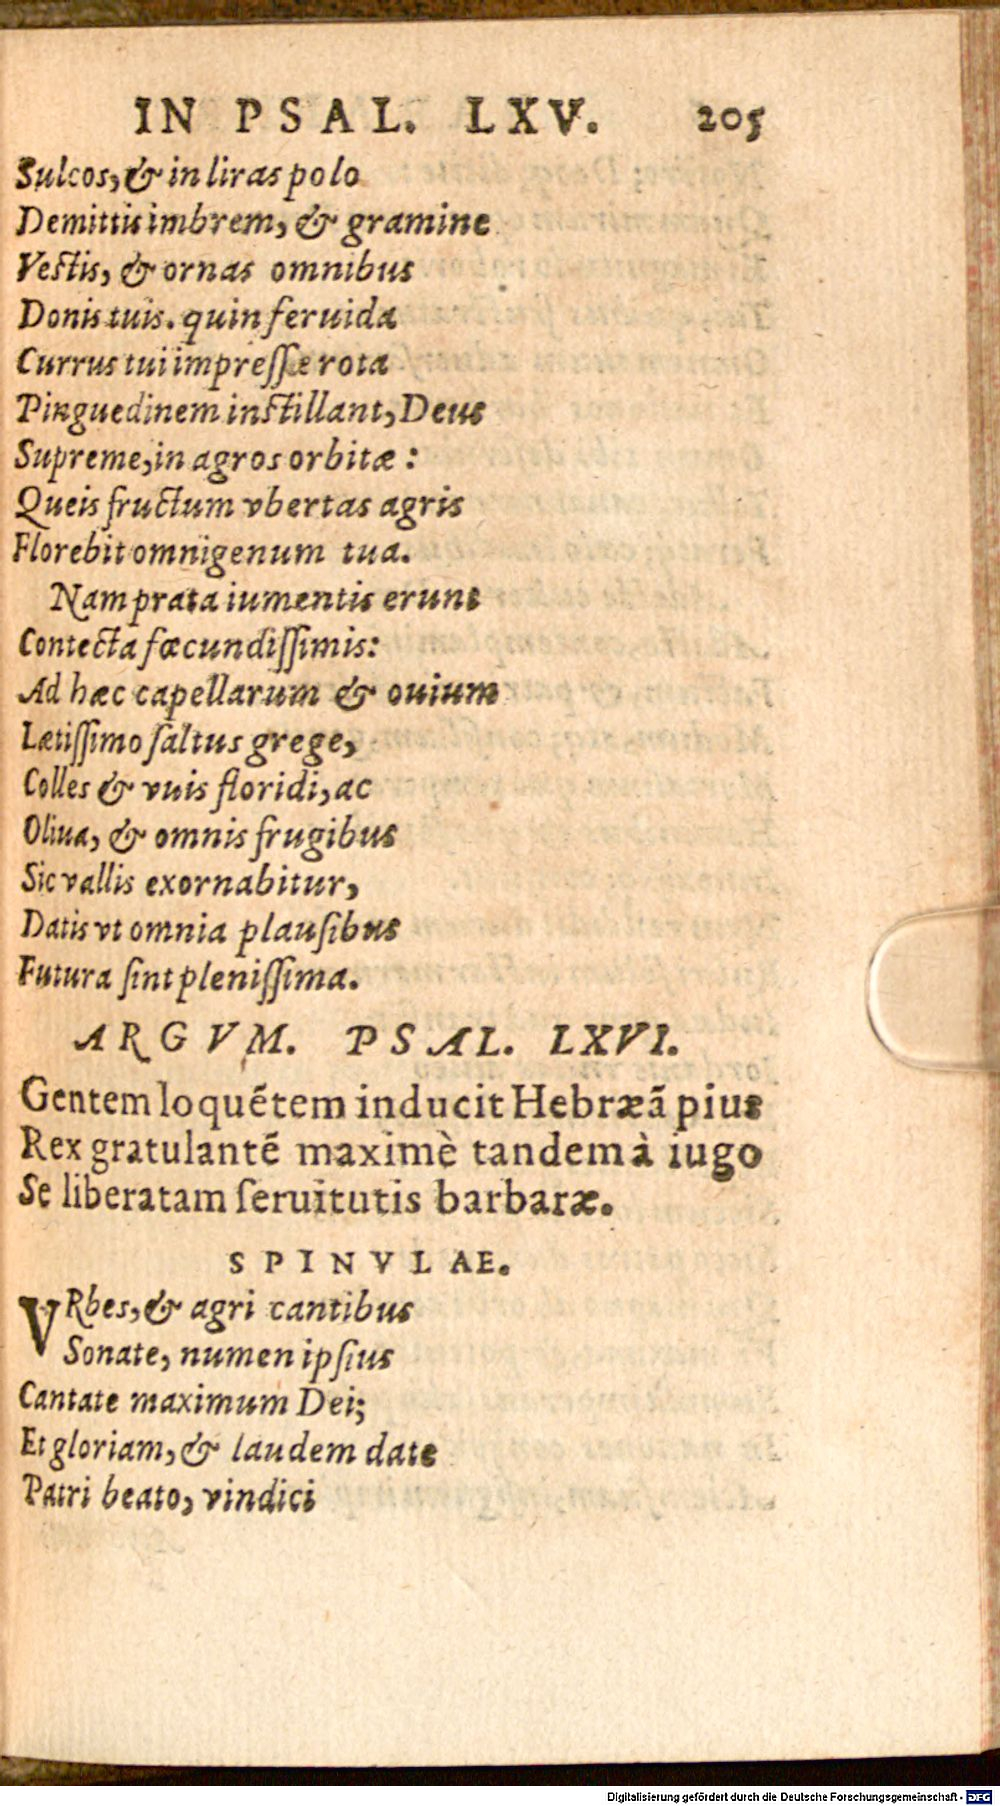 IN PSAL. LXV. 205
Sulcos, & in liras polo
Demittis imbrem, & gramine
Vestis, & ornas omnibus
Donis tuis. quin feruida
Currus tui impressæ rota
Pinguedinem instillant, Deus
Supreme, in agros orbitæ:
Queis fructum vbertas agris
Florebit omnigenum tua.
Nam prata iumentis erunt
Contecta fœcundissimis:
Ad hæc capellarum & ouium
Lætissimo saltus grege,
Colles & vuis floridi, ac
Oliua, & omnis frugibus
Sic vallis exornabitur,
Datis vt omnia plausibus
Futura sint plenissima.
ARGVM. PSAL. LXVI.
Gentem loquẽtem inducit Hebræã pius
Rex gratulantẽ maximè tandem à iugo
Se liberatam seruitutis barbaræ.
SPINVLAE.
VRbes, & agri cantibus
Sonate, numen ipsius
Cantate maximum Dei;
Et gloriam, & laudem date
Patri beato, vindici
Digitalisierung gefördert durch die Deutsche Forschungsgemeinschaft - DFG